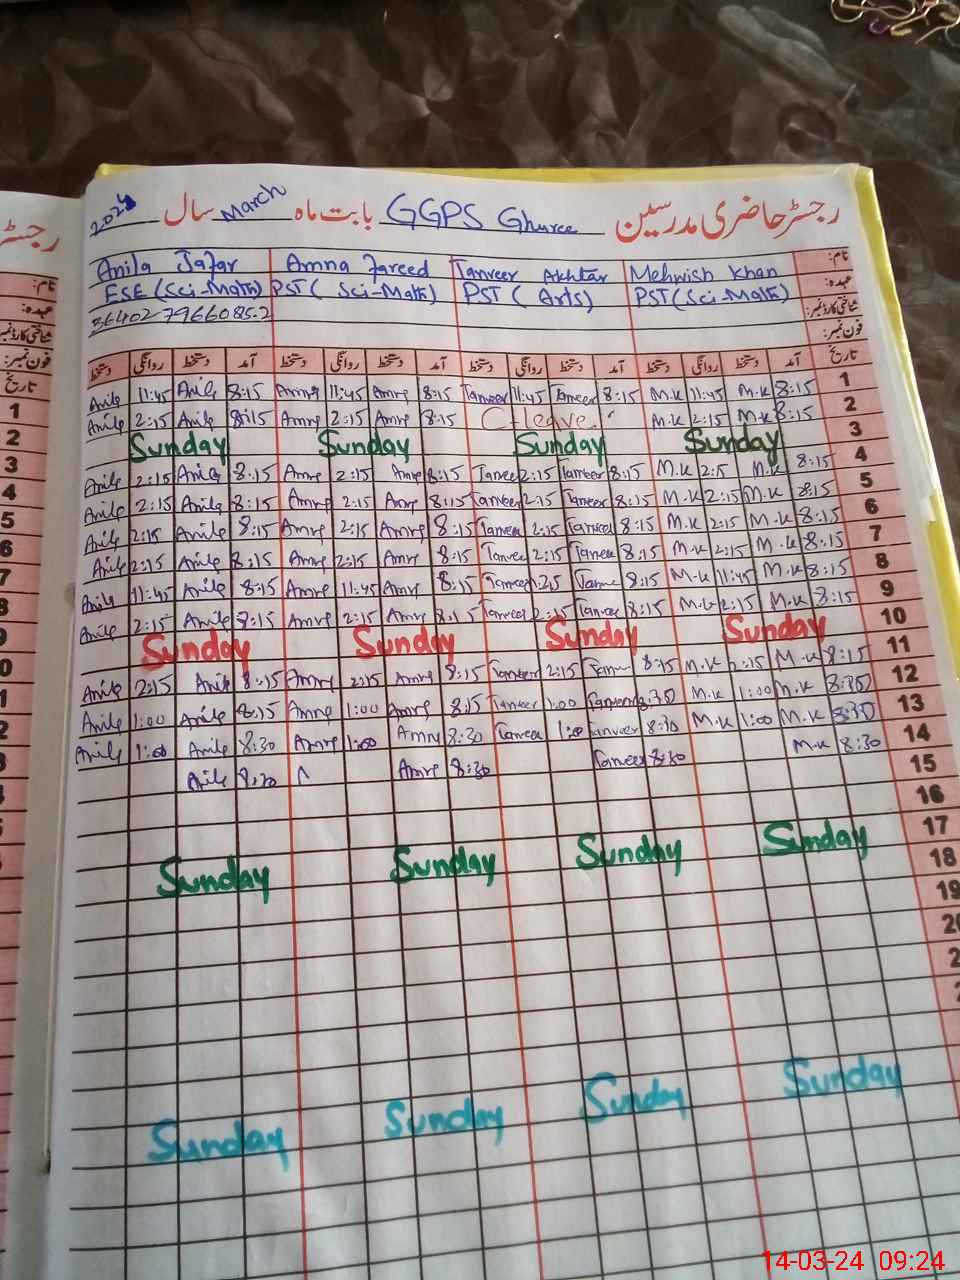 رجسٹر حاضری مدرسین GGPS Ghuree بابت ماہ March سال 2024
نام: Mehwish Khan Tanveer Akhtar Amna Fareed Anila Jafar
عہدہ: PST (Sci-Math) PST (Arts) PST (Sci-Math) ESE (Sci-Math)
شناختی کارڈ نمبر: 36402 7966085-2
فون نمبر:
تاریخ آمد دستخط روانگی دستخط آمد دستخط روانگی دستخط آمد دستخط روانگی دستخط آمد دستخط روانگی دستخط
1 8:15 M.K 11:45 M.K 8:15 Tanveer 11:45 Tanveer 8:15 Amna 11:45 Amna 8:15 Anila 11:45 Anila
2 8:15 M.K 2:15 M.K C-leave 8:15 Amna 2:15 Amna 8:15 Anila 2:15 Anila
3 Sunday Sunday Sunday Sunday
4 8:15 M.K 2:15 M.K 8:15 Tanveer 2:15 Tanveer 8:15 Amna 2:15 Amna 8:15 Anila 2:15 Anila
5 8:15 M.K 2:15 M.K 8:15 Tanveer 2:15 Tanveer 8:15 Amna 2:15 Amna 8:15 Anila 2:15 Anila
6 8:15 M.K 2:15 M.K 8:15 Tanveer 2:15 Tanveer 8:15 Amna 2:15 Amna 8:15 Anila 2:15 Anila
7 8:15 M.K 2:15 M.K 8:15 Tanveer 2:15 Tanveer 8:15 Amna 2:15 Amna 8:15 Anila 2:15 Anila
8 8:15 M.K 11:45 M.K 8:15 Tanveer Tanveer 8:15 Amna 11:45 Amna 8:15 Anila 11:45 Anila
9 8:15 M.K 2:15 M.K 8:15 Tanveer 2:15 Tanveer 8:15 Amna 2:15 Amna 8:15 Anila 2:15 Anila
10 Sunday Sunday Sunday Sunday
11 8:15 M.K 2:15 M.K 8:15 Tanveer 2:15 Tanveer 8:15 Amna 2:15 Amna 8:15 Anila 2:15 Anila
12 8:30 M.K 1:00 M.K 8:30 Tanveer 1:00 Tanveer 8:15 Amna 1:00 Amna 8:15 Anila 1:00 Anila
13 8:30 M.K 1:00 M.K 8:30 Tanveer 1:00 Tanveer 8:30 Amna 1:00 Amna 8:30 Anila 1:00 Anila
14 8:30 M.K 8:30 Tanveer 8:30 Amna 8:30 Anila
15
16
17 Sunday Sunday Sunday Sunday
18
19
Sunday Sunday Sunday Sunday
14-03-24 09:24